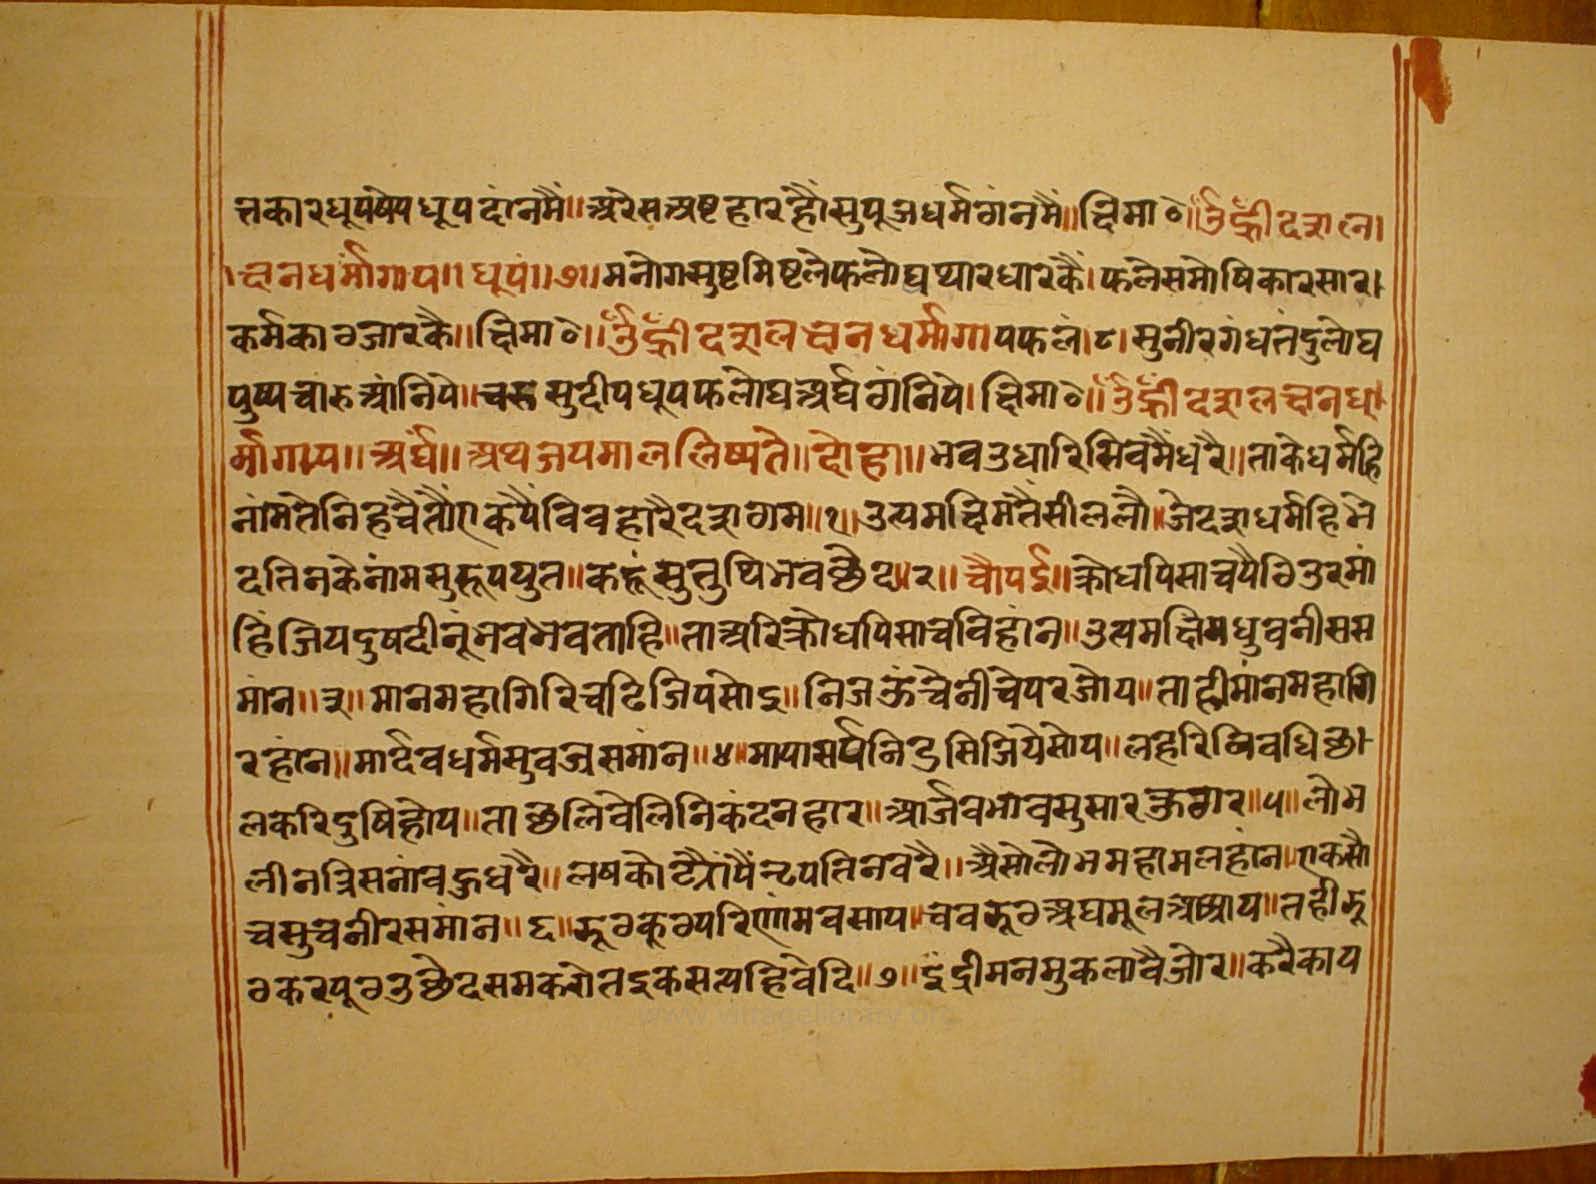 त्तकारधूपषेपधूपदांनमैं॥अरेसअष्टहारहौंसुपूजधर्मठांनमैं॥छिमा०॥ॐह्रींदशल
छनधर्मांगाय॥धूपं॥७॥मनोगसुष्टमिष्टलेफलोघथारधारकैं।फलेसमोषिकारसार।
कर्मकाठजारकै॥छिमा०॥ॐह्रींदशलछनधर्मांगायफलं।८।सुनीरगंधतंदुलोघ
पुष्पचारुआंनिये॥चरूसुदीपधूपफलोघअर्घठांनिये।छिमा०॥ॐह्रींदशलछनध
र्मांगाय॥अर्घं॥अथजयमाललिष्यते॥दोहा॥भवउधारिसिवमैंधरै॥ताकेधर्महि
नांमतेनिहचैतौंएकयैंविवहारैदशठाम॥१॥उत्यमछिमंतैंसीललौ॥जेदशधर्महिभे
दतिनकेनांमसुरूपयुत॥कहूंसुनुथिभवछेद॥२॥चौपई॥क्रोधपिसाचपैठिउरमां
हिंजियदुषदीनूंभवभवताहि॥ताअरिक्रोधपिसाचविहांन॥उत्यमछिमधुवनीसस
मांन॥३॥मानमहागिरिचढिजियसोइ॥निजऊंचेनीचेपरजोय॥ताहीमांनमहागि
रहांन॥मार्दवधर्मसुवज्रसमांन॥४॥मायासर्पनिडसिजियेसोय॥लहरिविवधिछ
लकरिदुषिहोय॥ताछलिवेलिनिकंदनहार॥आर्जवभावसुसारकुठार॥५॥लोभ
लीनत्रिसनांवहुधरै॥लषकोटैरांपैंन्टपतिनवरै॥अैसोलोभमहामलहांन॥एकसौ
चसुचनीरसमांन॥६॥झूठकूठपरिणांमवसाय॥चवझूठअघमूलअथाय॥तहीझू
ठकरपूठउछेदसमकरोतइकसत्यहिवेदि॥७॥इंद्रीमनमुकलावैजोर॥करैकाय
www.vitragelibrary.org